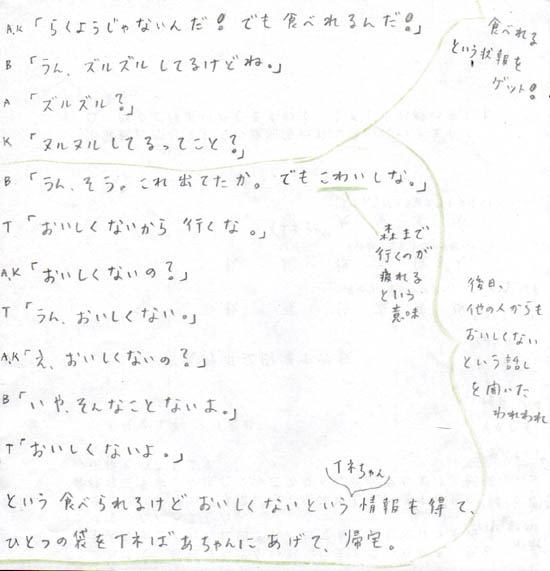 A,K「らくようじゃないんだ! でも食べれるんだ!」
B「うん、ズルズルしてるけどね。」
A「ズルズル?」
K「ヌルヌルしてるってこと?」
B「うん、そう。これ出てたか。でもこわいしな。」
T「おいしくないから行くな。」
A,K「おいしくないの?」
T「うん、おいしくない。」
A,K「え、おいしくないの?」
B「いや、そんなことないよ。」
T「おいしくないよ。」
Tネちゃん
という食べられるけどおいしくないという情報も得て、
ひとつの袋をTネばあちゃんにあげて、帰宅。
食べれる
という状報を
ゲット!
森まで
行くのが
疲れる
という
意味
後日、
他の人からも
おいしくない
という話し
を聞いた
われわれ